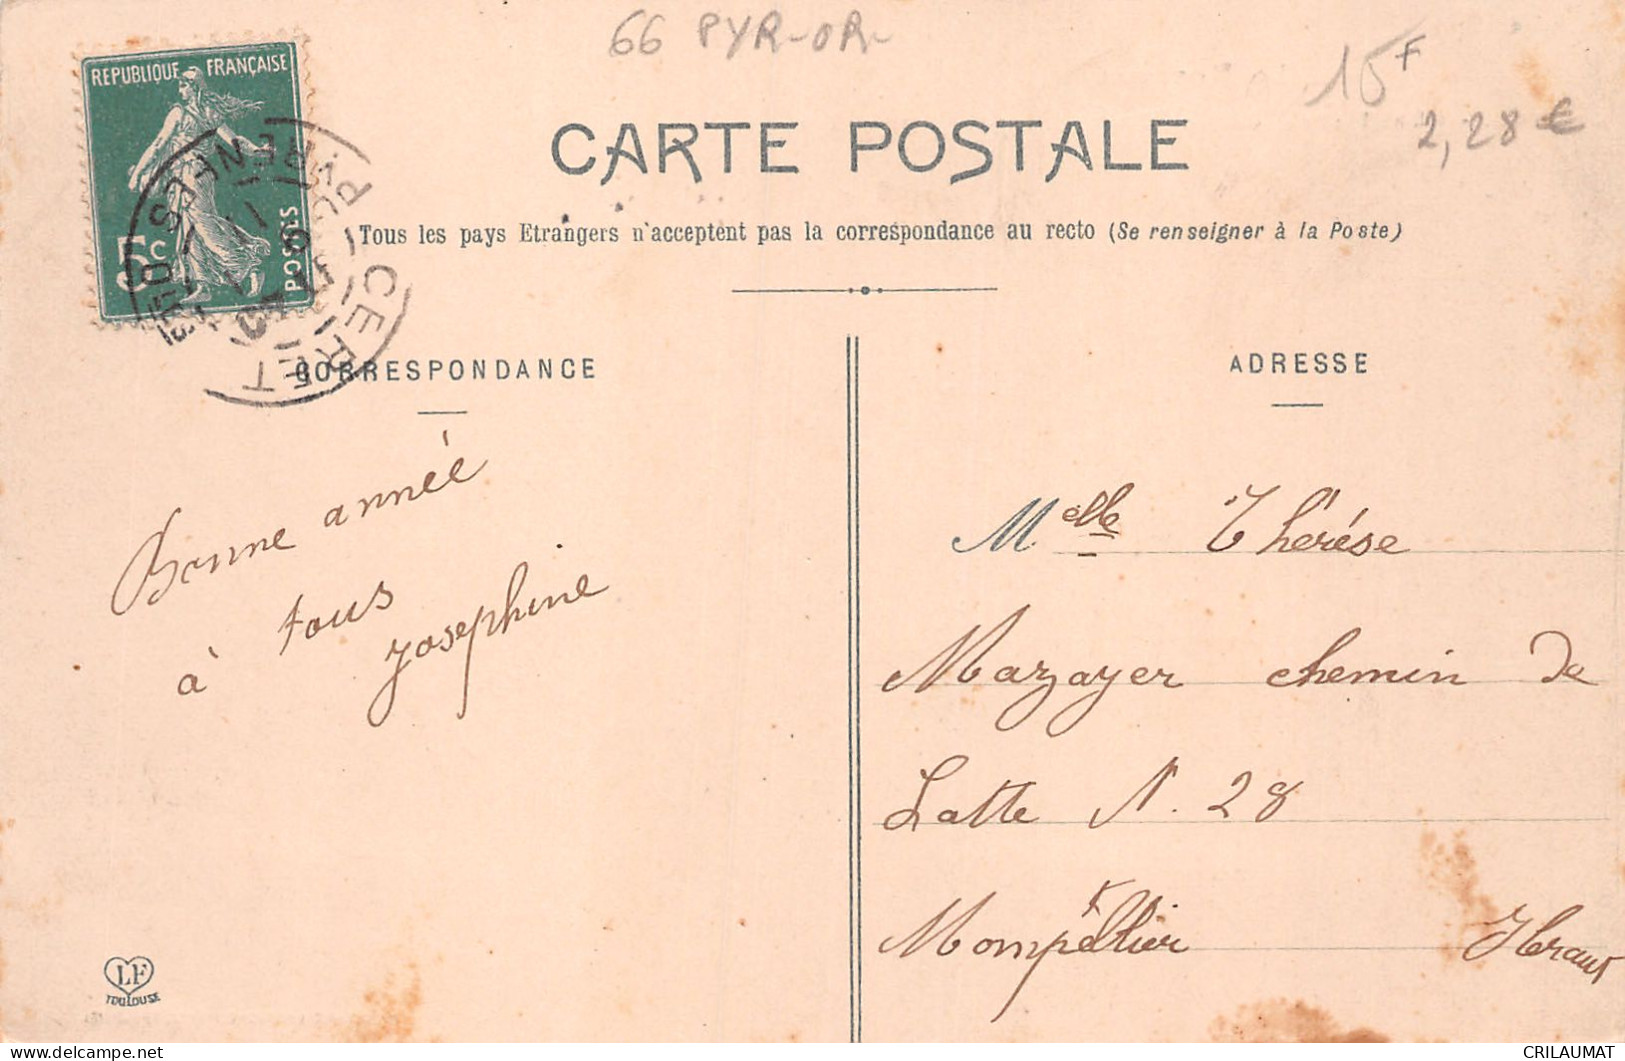 66 PYR-OR-
15F
2,28 €
REPUBLIQUE FRANÇAISE
5c
POSTES
CERET
PYRENEES
CARTE POSTALE
Tous les pays Etrangers n'acceptent pas la correspondance au recto (Se renseigner à la Poste)
CORRESPONDANCE
ADRESSE
Bonne année
à tous
Josephine
Melle Thérése
Mazayer chemin de
Latte N. 28
Mompellier Heraut
LF
TOULOUSE
CRILAUMAT